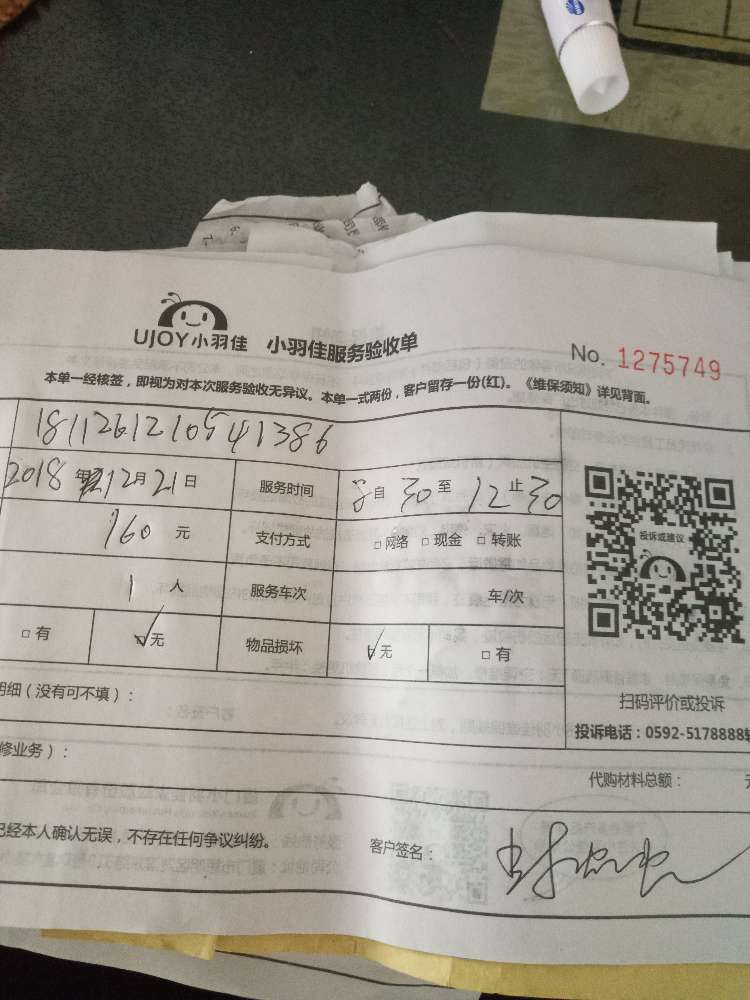 UJOY小羽佳 小羽佳服务验收单
No. 1275749
本单一经核签，即视为对本次服务验收无异议。本单一式两份，客户留存一份(红)。《维保须知》详见背面。
2018年12月21日 服务时间 自 30 至 12 止 30
160 元 支付方式 □网络 □现金 □转账
1 人 服务车次 车/次
□有 □无 物品损坏 □无 □有
投诉或建议
扫码评价或投诉
投诉电话：0592-5178888转
明细（没有可不填）：
修业务）：
代购材料总额：
已经本人确认无误，不存在任何争议纠纷。 客户签名：